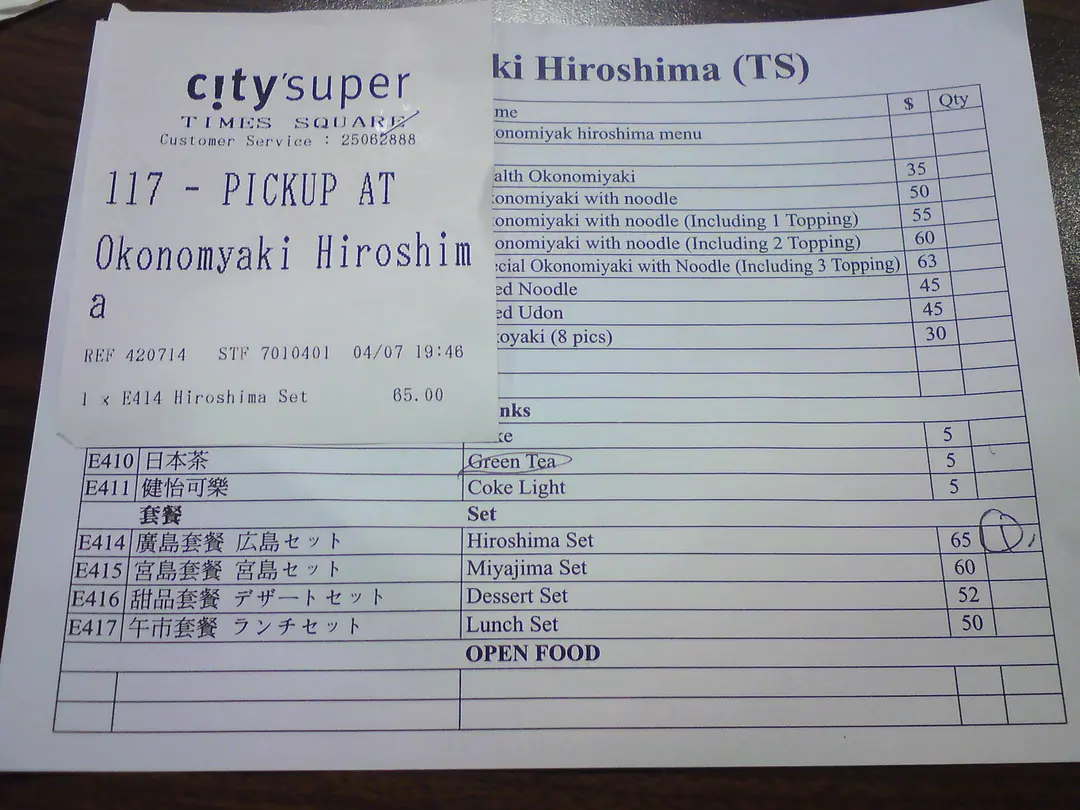 c!ty'super
TIMES SQUARE
Customer Service : 25062888
117 - PICKUP AT
Okonomyaki Hiroshim
a
REF 420714 STF 7010401 04/07 19:46
1 x E414 Hiroshima Set 65.00
ki Hiroshima (TS)
me $ Qty
onomiyak hiroshima menu
alth Okonomiyaki 35
onomiyaki with noodle 50
onomiyaki with noodle (Including 1 Topping) 55
onomiyaki with noodle (Including 2 Topping) 60
cial Okonomiyaki with Noodle (Including 3 Topping) 63
ed Noodle 45
ed Udon 45
oyaki (8 pics) 30
nks
ke 5
E410 日本茶 Green Tea 5
E411 健怡可樂 Coke Light 5
套餐 Set
E414 廣島套餐 広島セット Hiroshima Set 65 1
E415 宮島套餐 宮島セット Miyajima Set 60
E416 甜品套餐 デザートセット Dessert Set 52
E417 午市套餐 ランチセット Lunch Set 50
OPEN FOOD